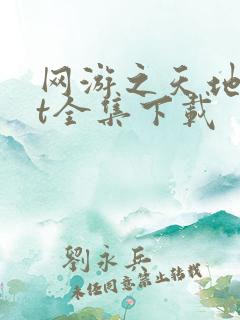 网游之天地
t全集下载
劉永兵
未经同意禁止转载